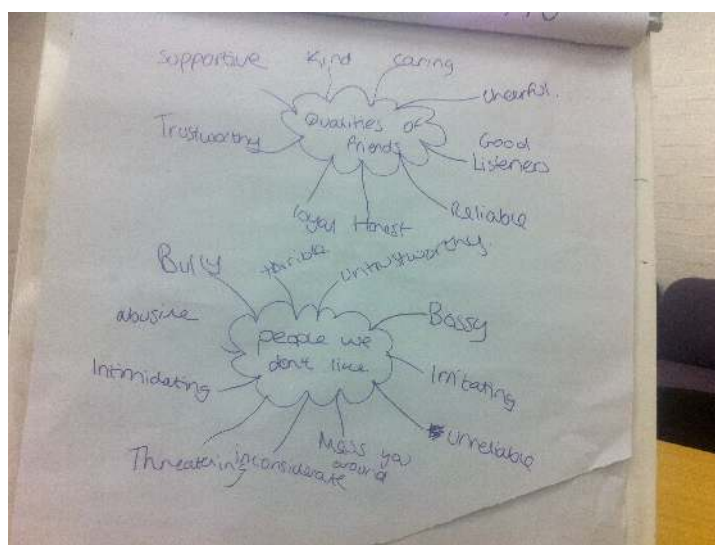 Supportive
Kind
Caring
Cheerful.
Trustworthy
Qualities of
friends
Good
Listeners
loyal
Honest
Reliable
Bully
Horrible
Untrustworthy
abusive
people we
don't like
Bossy
Intimidating
Irritating
Threatening
inconsiderate
Mess you
around
Unreliable